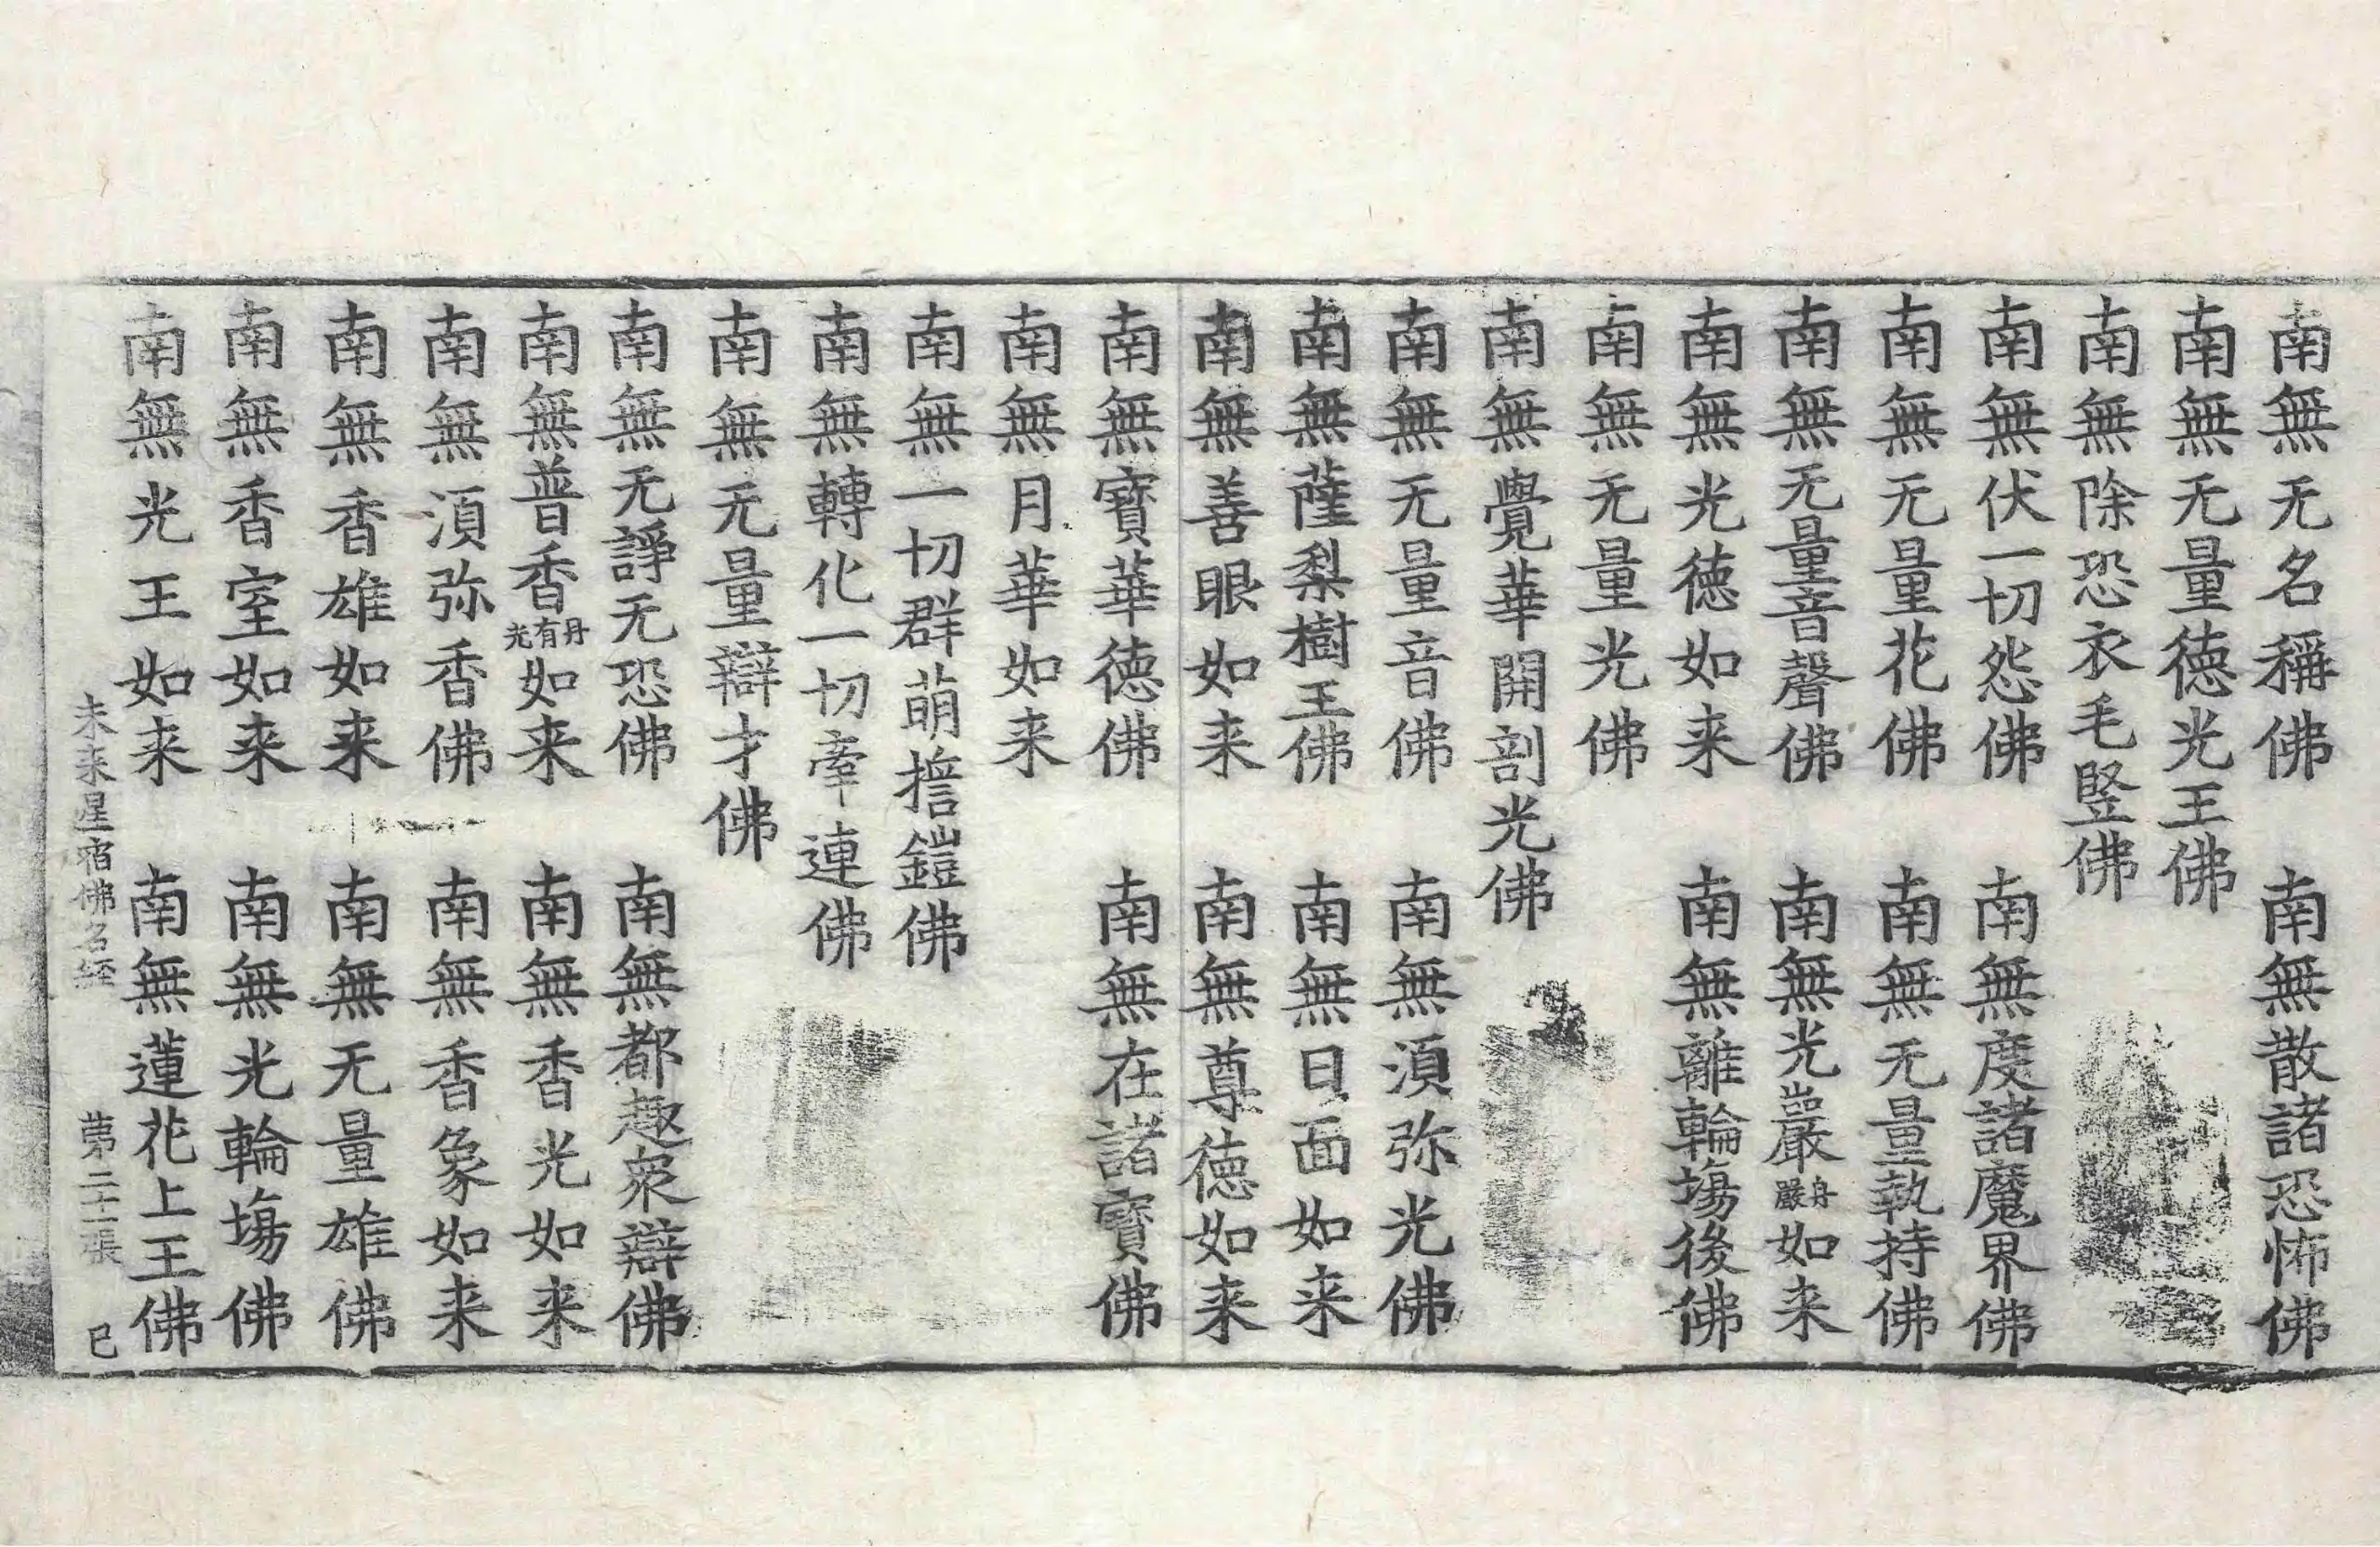 南無无名稱佛　南無散諸恐怖佛
南無无量德光王佛
南無除恐衣毛竪佛
南無伏一切怨佛　南無度諸魔界佛
南無无量花佛　南無无量執持佛
南無无量音聲佛　南無光巖丹嚴如来
南無光德如来　南無離輪塲後佛
南無无量光佛
南無覺華開剖光佛
南無无量音佛　南無湏弥光佛
南無薩梨樹王佛　南無日面如来
南無善眼如来　南無尊德如来
南無寶華德佛　南無在諸寶佛
南無月華如来
南無一切群萌擔鎧佛
南無轉化一切牽連佛
南無无量辯才佛
南無无諍无恐佛　南無都趣衆辯佛
南無普香丹有光如来　南無香光如来
南無湏弥香佛　南無香象如来
南無香雄如来　南無无量雄佛
南無香室如来　南無光輪塲佛
南無光王如来　南無蓮花上王佛
未来星宿佛名経　苐二十一張　巳